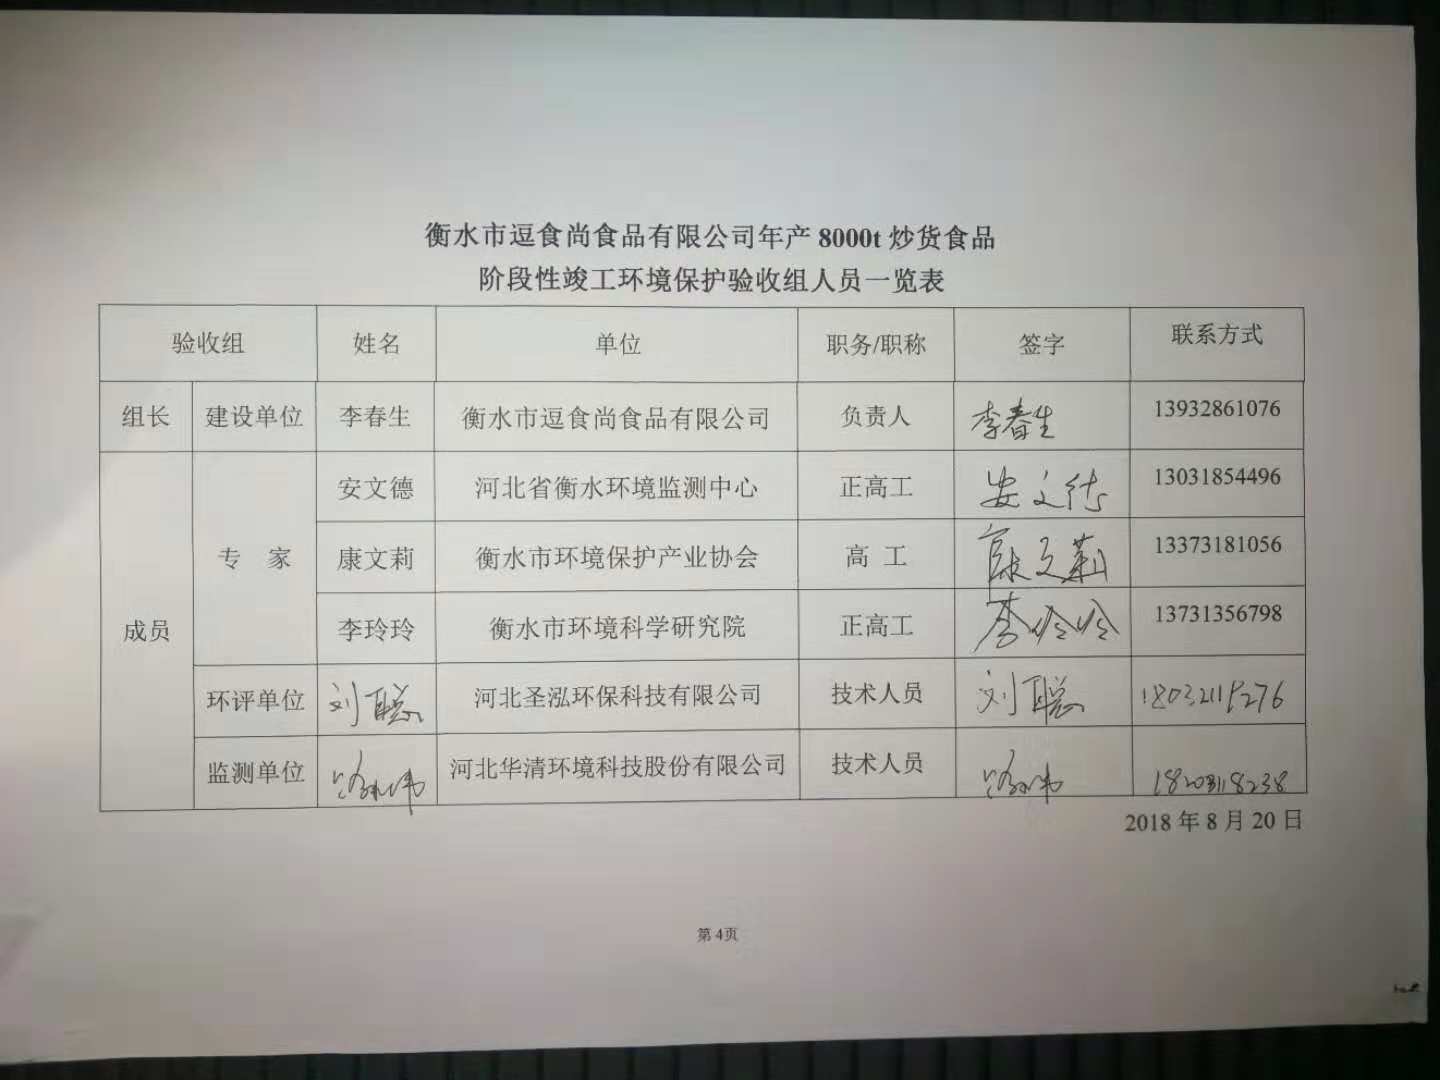 衡水市逗食尚食品有限公司年产 8000t 炒货食品
阶段性竣工环境保护验收组人员一览表
验收组 姓名 单位 职务/职称 签字 联系方式
组长 建设单位 李春生 衡水市逗食尚食品有限公司 负责人 李春生 13932861076
成员 专 家 安文德 河北省衡水环境监测中心 正高工 安文德 13031854496
康文莉 衡水市环境保护产业协会 高 工 康文莉 13373181056
李玲玲 衡水市环境科学研究院 正高工 李玲玲 13731356798
环评单位 刘聪 河北圣泓环保科技有限公司 技术人员 刘聪 18032115276
监测单位 河北华清环境科技股份有限公司 技术人员
2018 年 8 月 20 日
第 4页